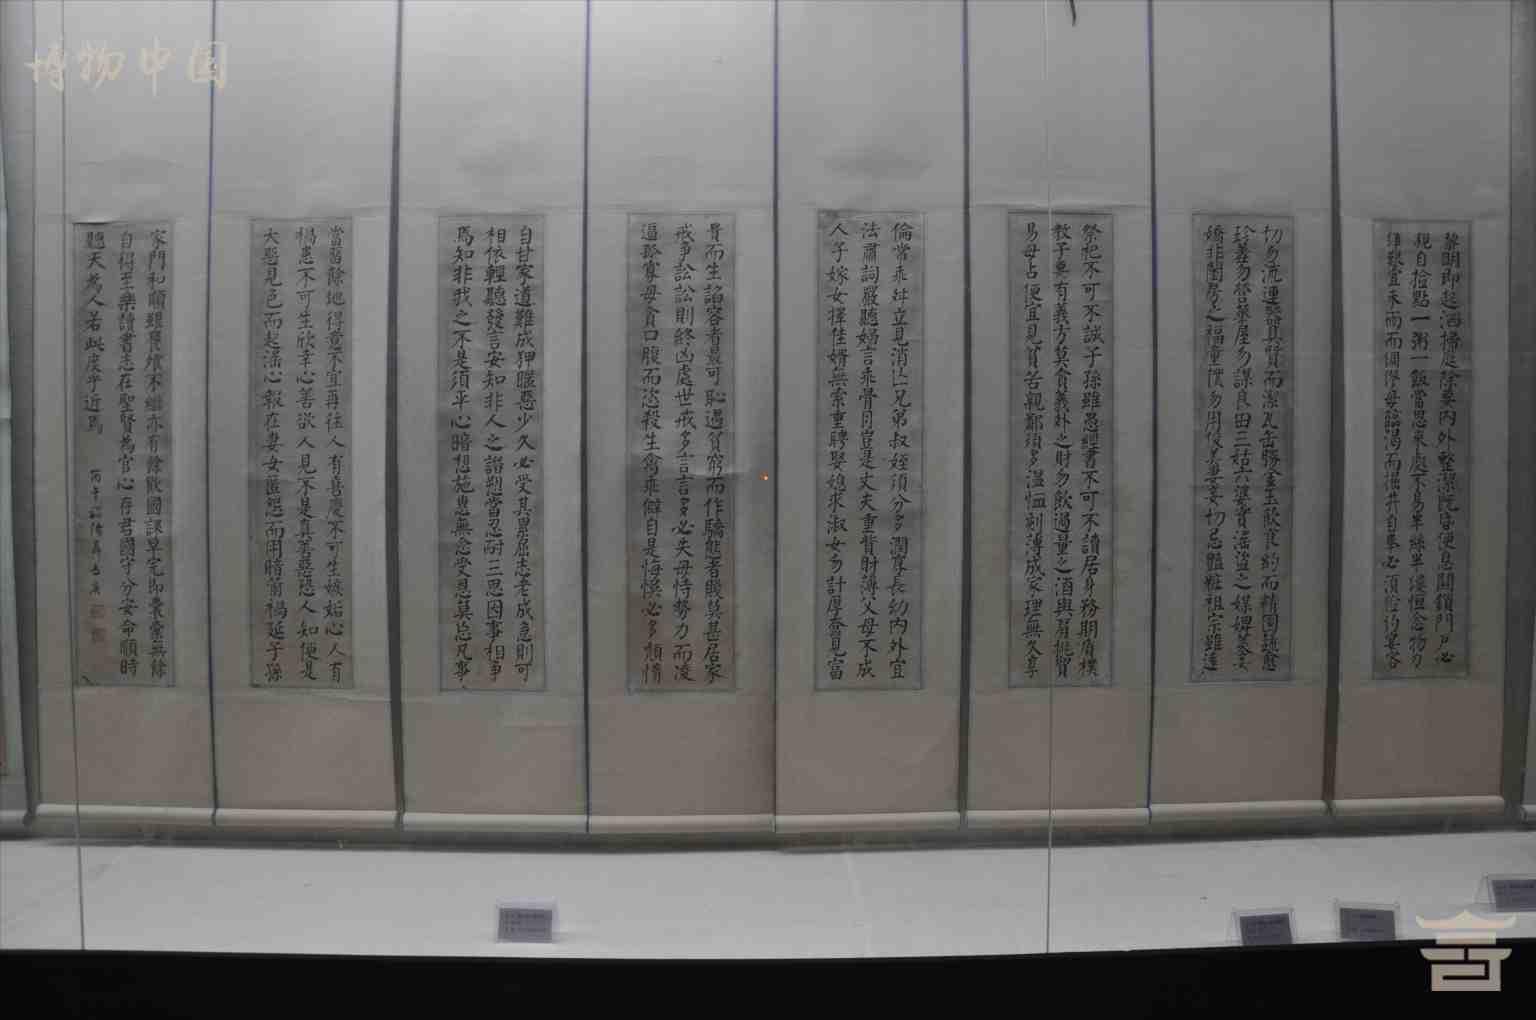 博物中国
黎明即起洒掃庭除要內外整潔既昏便息関鎖門戶必
親自撿點一粥一飯當思來處不易半絲半縷恒念物力
維艱宜未雨而綢繆毋臨渴而掘井自奉必須儉約宴客
切勿流連器具質而潔瓦缶勝金玉飲食約而精園蔬愈
珍羞勿營華屋勿謀良田三姑六婆實滛盜之媒婢美妾
嬌非閨房之福童僕勿用俊美妻妾切忌豔粧祖宗雖遠
祭祀不可不誠子孫雖愚經書不可不讀居身務期質樸
教子要有義方莫貪義外之財勿飲過量之酒與肩挑貿
易毋占便宜見貧苦親鄰須多溫恤刻薄成家理無久享
倫常乖舛立見消亡兄弟叔姪須分多潤寡長幼內外宜
法肅詞嚴聽婦言乖骨肉豈是丈夫重貲財薄父母不成
人子嫁女擇佳婿無索重聘娶媳求淑女勿計厚奩見富
貴而生諂容者最可恥遇貧窮而作驕態者賤莫甚居家
戒爭訟訟則終凶處世戒多言言多必失毋恃勢力而凌
逼孤寡毋貪口腹而恣殺生禽乖僻自是悔悞必多頹惰
自甘家道難成狎暱惡少久必受其累屈志老成急則可
相依輕聽發言安知非人之譖愬當忍耐三思因事相爭
焉知非我之不是須平心暗想施惠無念受恩莫忘凡事
當留餘地得意不宜再往人有喜慶不可生嫉妬心人有
禍患不可生欣幸心善欲人見不是真善惡恐人知便是
大惡見色而起滛心報在妻女匿怨而用暗箭禍延子孫
家門和順雖饔飧不繼亦有餘歡國課早完即囊橐無餘
自得至樂讀書志在聖賢為官心存君國守分安命順時
聽天為人若此庶乎近焉
丙午